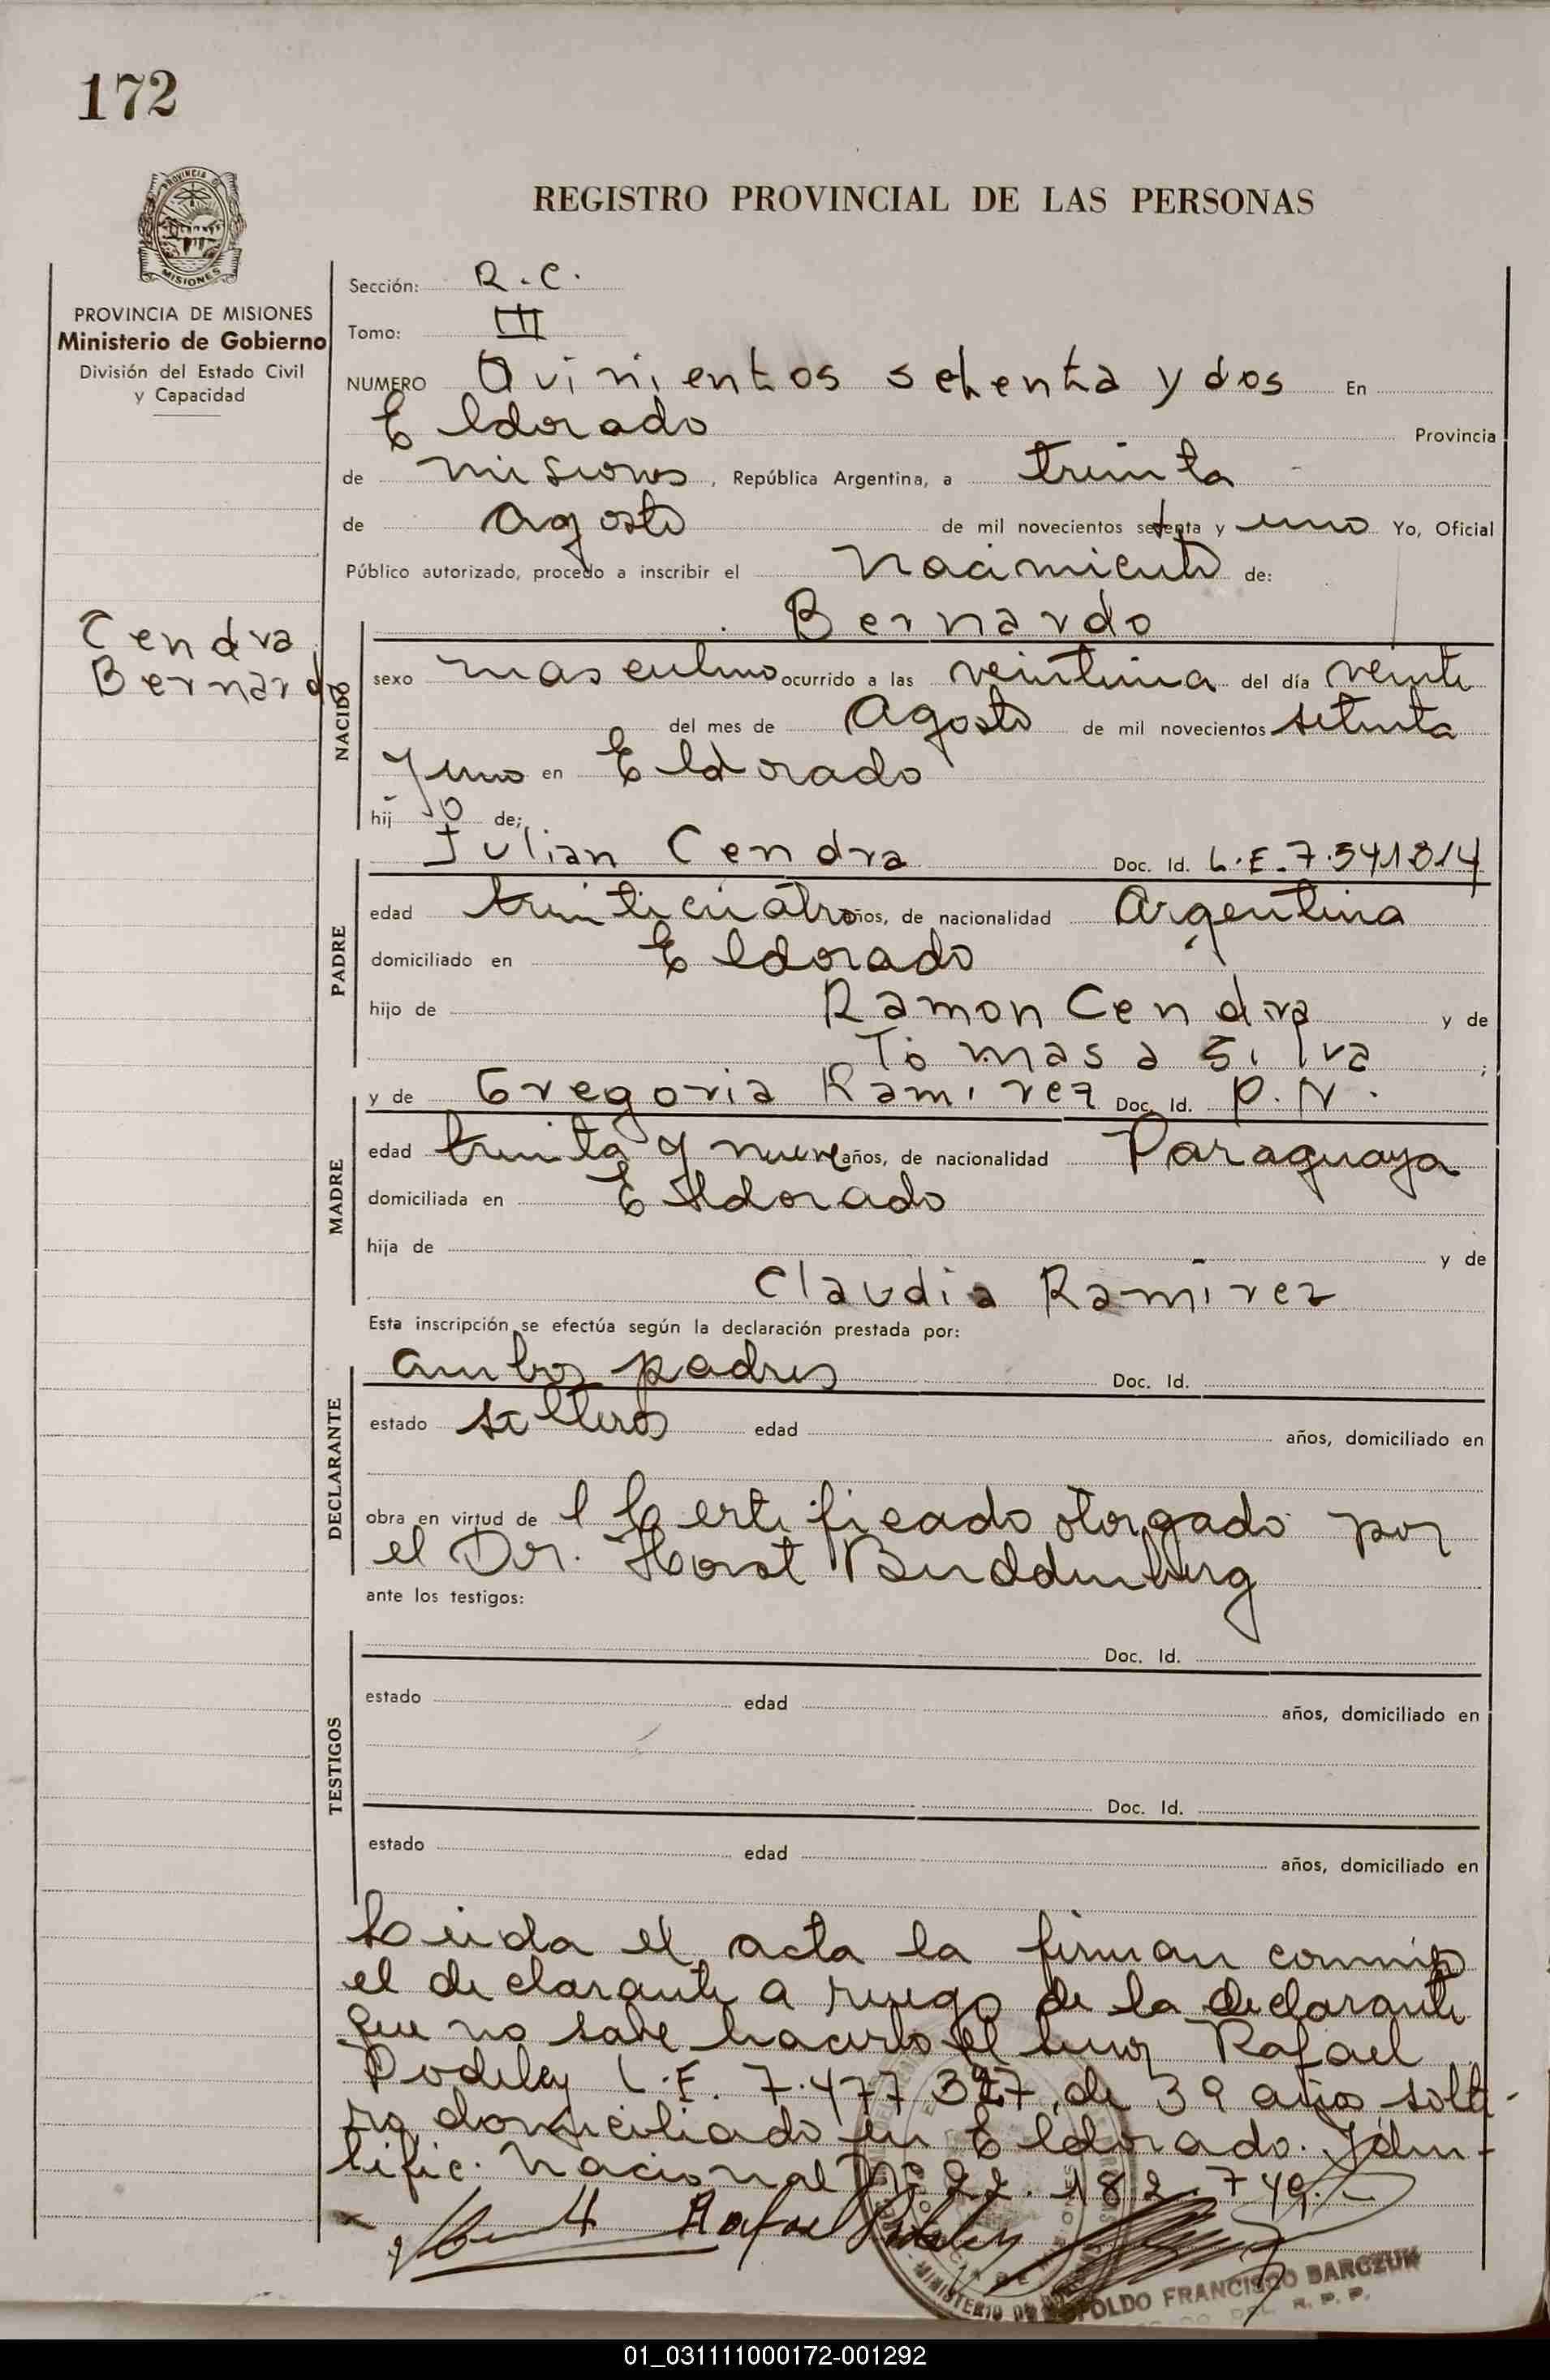 172
PROVINCIA DE MISIONES
Ministerio de Gobierno
División del Estado Civil
y Capacidad
Cendra
Bernardo
REGISTRO PROVINCIAL DE LAS PERSONAS
Sección: R.C.
Tomo: III
NUMERO Quinientos setenta y dos En
Eldorado Provincia
de Misiones, República Argentina, a treinta
de Agosto de mil novecientos setenta y uno Yo, Oficial
Público autorizado, procedo a inscribir el Nacimiento de:
Bernardo
NACIDO
sexo masculino ocurrido a las veintiuna del día veinte
del mes de Agosto de mil novecientos setenta
y uno en Eldorado
hijo de;
Julian Cendra Doc. Id. L.E. 7.541814
PADRE
edad treinticuatro años, de nacionalidad Argentina
domiciliado en Eldorado
hijo de Ramon Cendra y de
Tomasa Silva;
y de Gregoria Ramirez Doc. Id. P.N.
MADRE
edad treinta y nueve años, de nacionalidad Paraguaya
domiciliada en Eldorado
hija de y de
Claudia Ramirez
Esta inscripción se efectúa según la declaración prestada por:
ambos padres Doc. Id.
DECLARANTE
estado solteros edad años, domiciliado en
obra en virtud de l Certificado otorgado por
el Dr. Horst Buddenberg
ante los testigos:
Doc. Id.
TESTIGOS
estado edad años, domiciliado en
Doc. Id.
estado edad años, domiciliado en
Leida el acta la firman conmigo
el declarante a ruego de la declarante
que no sabe hacerlo el señor Rafael
L.E. 7.477 327, de 39 años solte-
ro domiciliado en Eldorado. Iden-
tific. Nacional Nº 22.182.749.-
Rafael
LEOPOLDO FRANCISCO BARCZUK
DEL R. P. P.
01_031111000172-001292